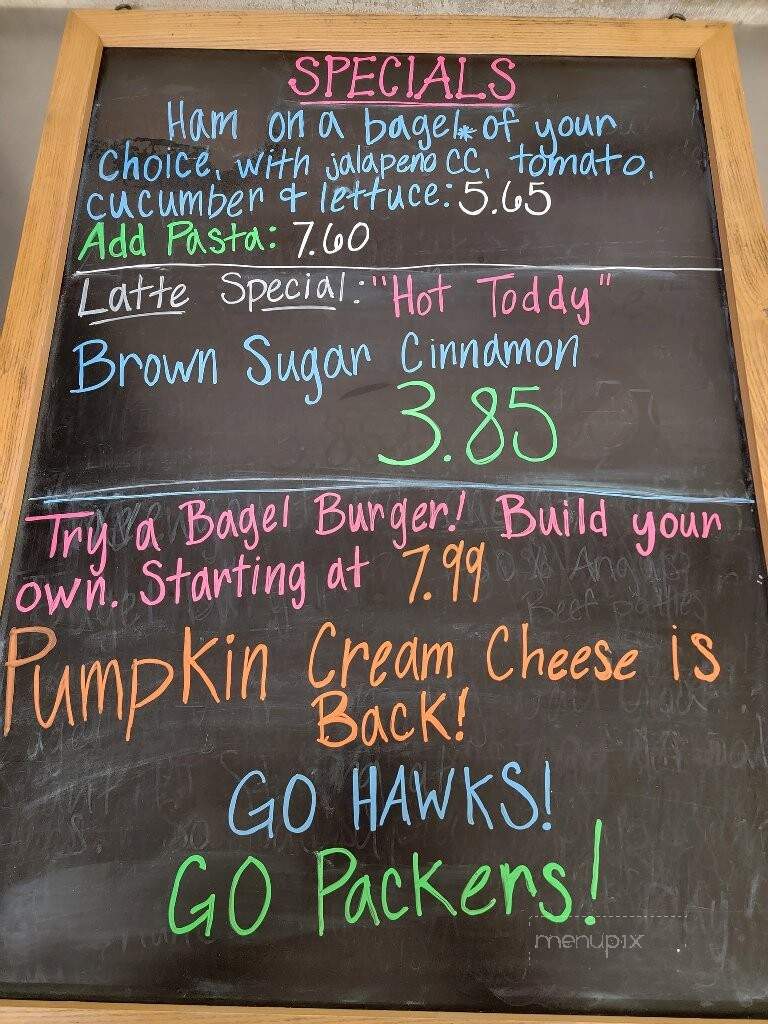 SPECIALS
Ham on a bagel* of your
choice, with jalapeno cc, tomato,
cucumber & lettuce: 5.65
Add Pasta: 7.60
Latte Special: "Hot Toddy"
Brown Sugar Cinnamon
3.85
Try a Bagel Burger! Build your
own. Starting at 7.99
Angus
Beef patties
Pumpkin Cream Cheese is
Back!
GO HAWKS!
GO Packers!
menupix